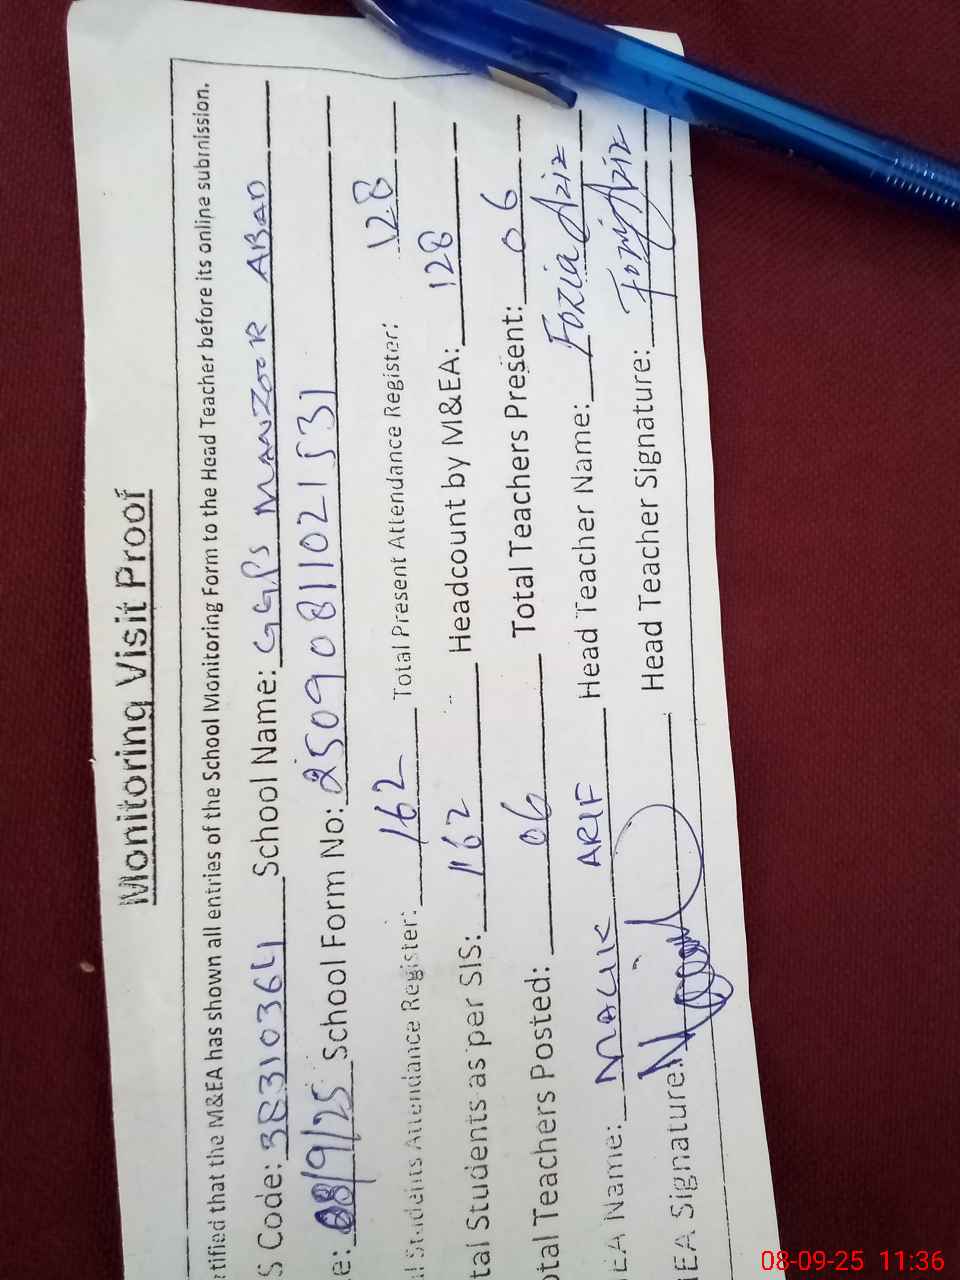 Monitoring Visit Proof
tified that the M&EA has shown all entries of the School Monitoring Form to the Head Teacher before its online submission.
S Code: 38310364 School Name: GGPS MANZOOR ABAD
e: 08/9/25 School Form No: 25090811021531
al Students Attendance Register: 162 Total Present Attendance Register: 128
tal Students as per SIS: 162 Headcount by M&EA: 128
otal Teachers Posted: 06 Total Teachers Present: 06
EA Name: MALIK ARIF Head Teacher Name: Fozia Aziz
EA Signature: Head Teacher Signature: Aziz
08-09-25 11:36